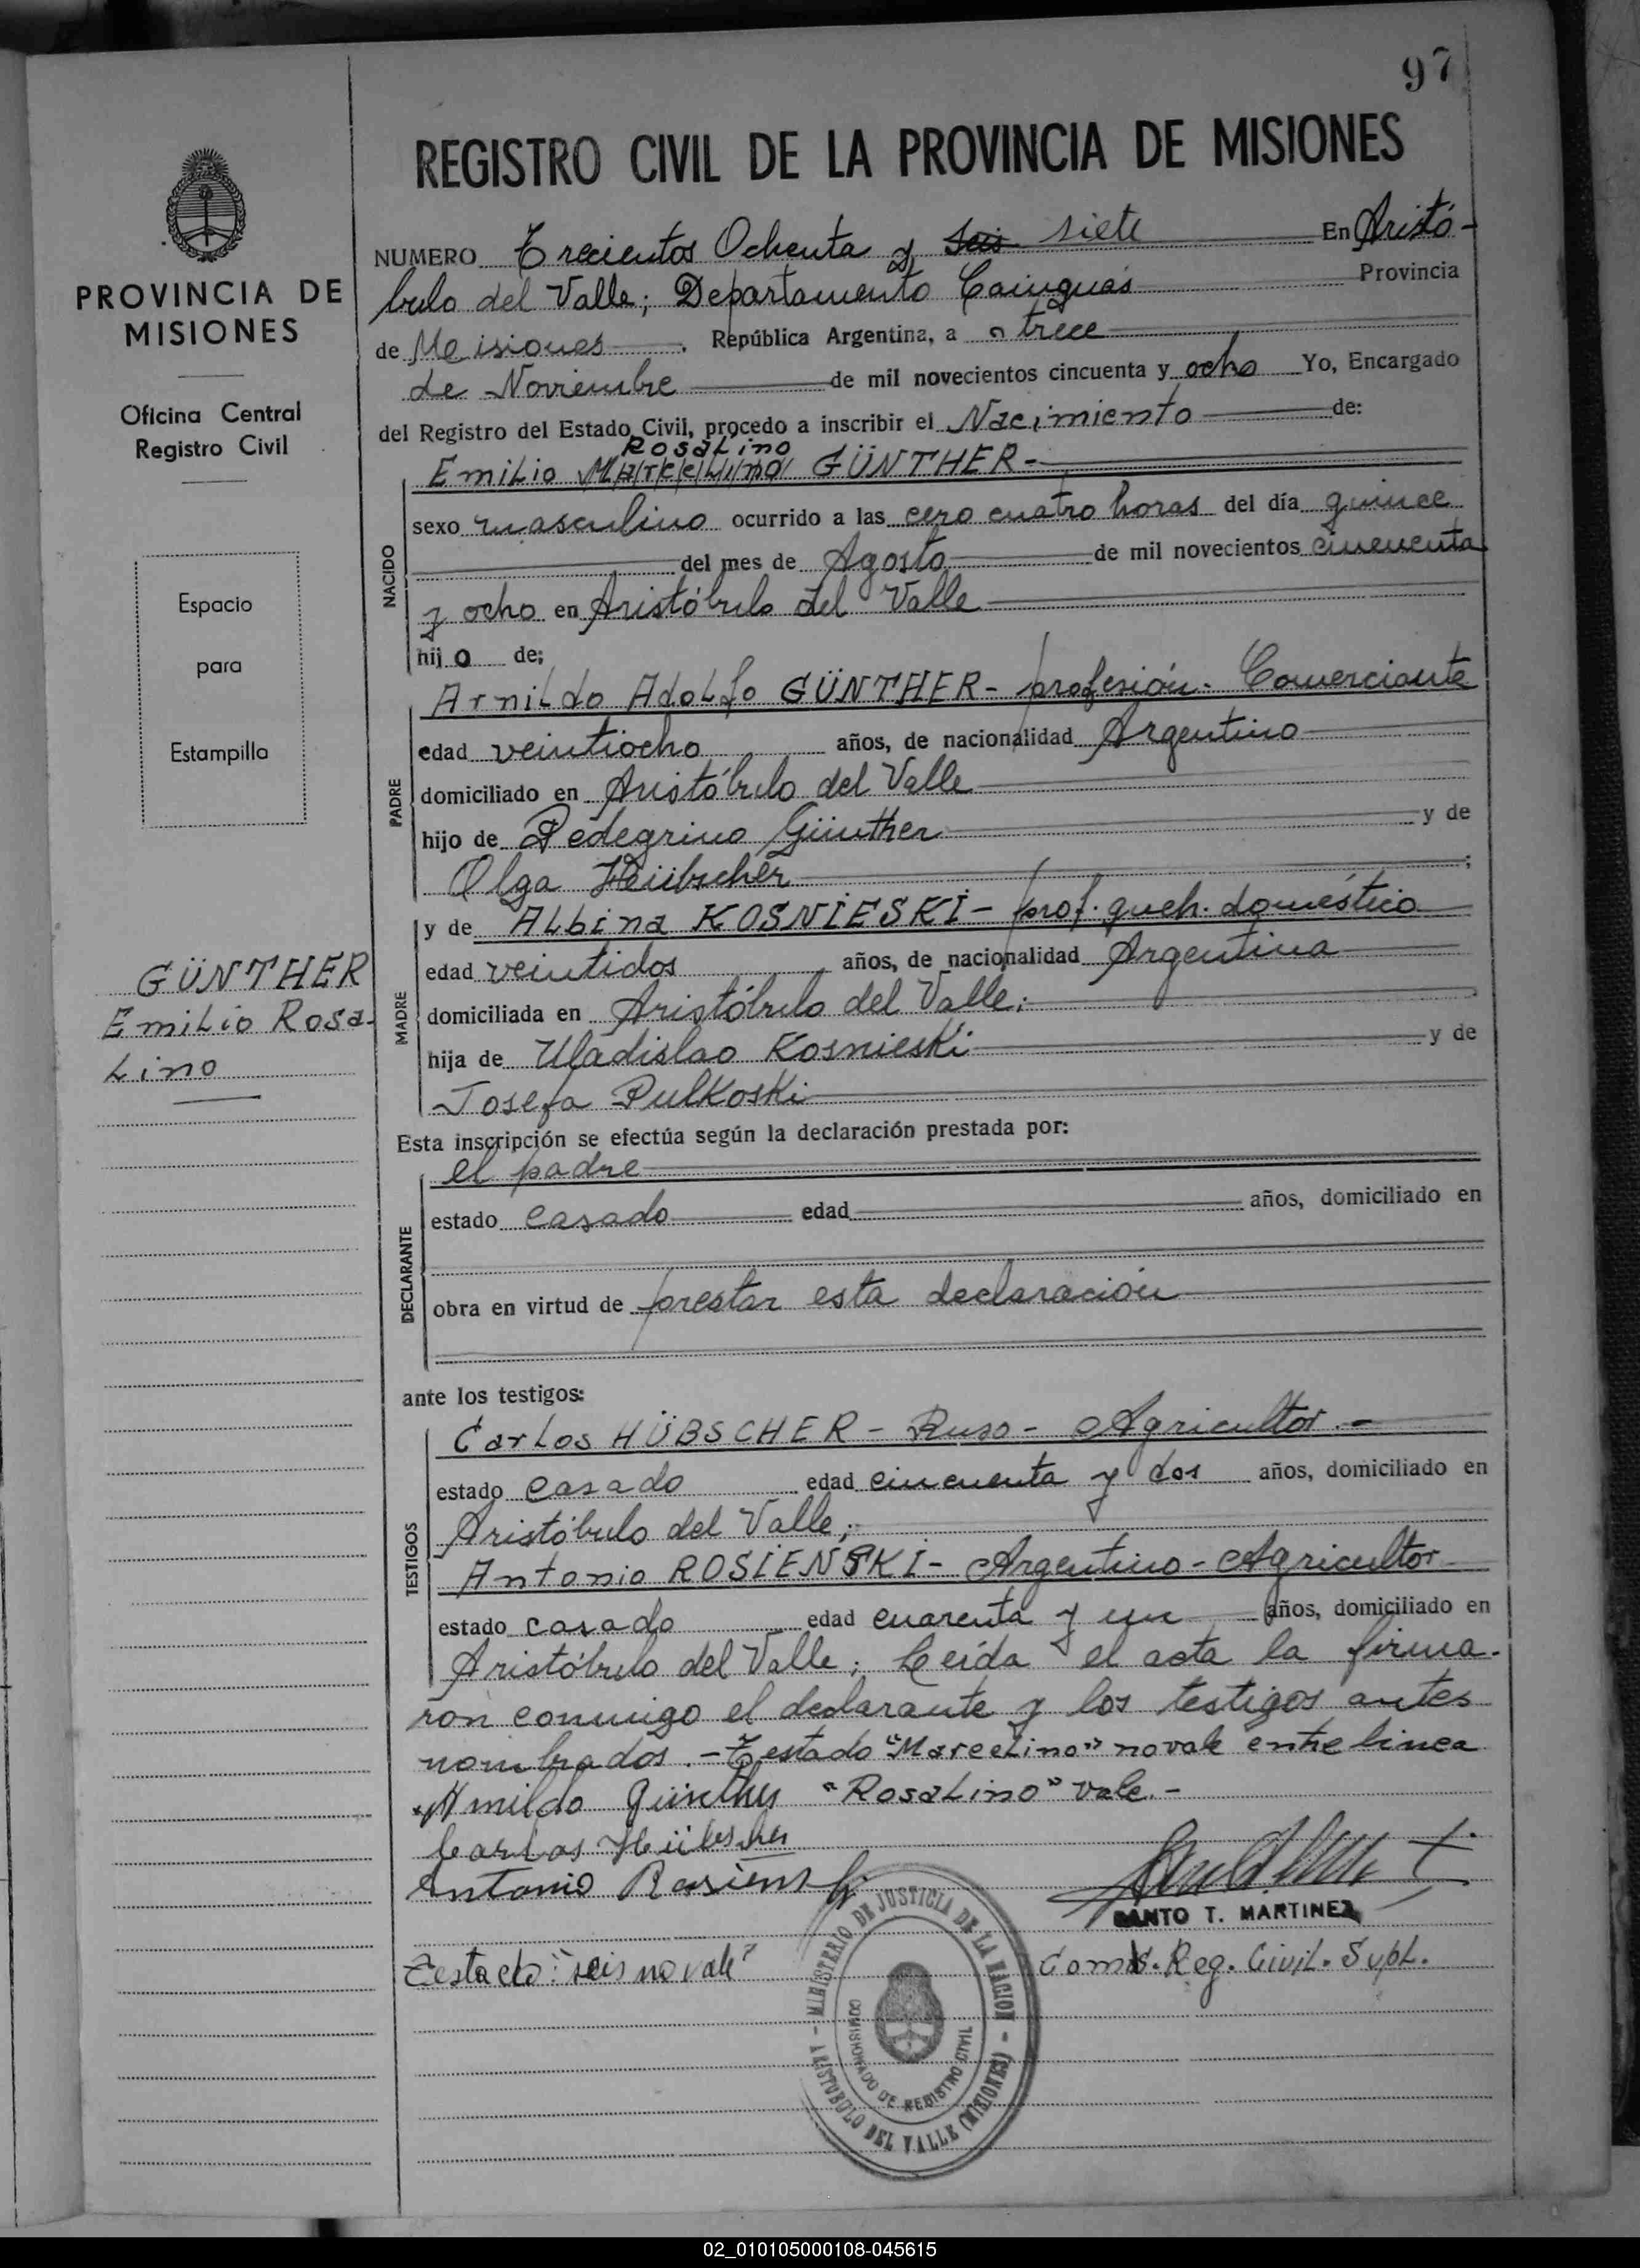 97
REGISTRO CIVIL DE LA PROVINCIA DE MISIONES
PROVINCIA DE
MISIONES
Oficina Central
Registro Civil
Espacio
para
Estampilla
GÜNTHER
Emilio Rosa-
Lino
NUMERO Trecientos Ochenta y seis siete En Aristó-
bulo del Valle; Departamento Cainguás Provincia
de Misiones. República Argentina, a trece
de Noviembre de mil novecientos cincuenta y ocho Yo, Encargado
del Registro del Estado Civil, procedo a inscribir el Nacimiento de:
Rosalino
Emilio Marcelino GÜNTHER-
NACIDO
sexo masculino ocurrido a las cero cuatro horas del día quince
del mes de Agosto de mil novecientos cincuenta
y ocho en Aristóbulo del Valle
hijo de;
PADRE
Arnildo Adolfo GÜNTHER- profesión- Comerciante
edad veintiocho años, de nacionalidad Argentino
domiciliado en Aristóbulo del Valle
hijo de Pedegrino Günther y de
Olga Heübscher;
MADRE
y de Albina KOSNIESKI- prof. queh. doméstico
edad veintidos años, de nacionalidad Argentina
domiciliada en Aristóbulo del Valle;
hija de Uladislao Kosnieski y de
Josefa Pulkoski
Esta inscripción se efectúa según la declaración prestada por:
DECLARANTE
el padre
estado casado edad años, domiciliado en
obra en virtud de prestar esta declaración
ante los testigos:
TESTIGOS
Carlos HÜBSCHER - Ruso - Agricultor.-
estado casado edad cincuenta y dos años, domiciliado en
Aristóbulo del Valle;
Antonio ROSIENSKI- Argentino- Agricultor
estado casado edad cuarenta y un años, domiciliado en
Aristóbulo del Valle; Leída el acta la firma-
ron conmigo el declarante y los testigos antes
nombrados.- Testado "Marcelino" no vale entre linea
Arnildo Günther "Rosalino" vale.-
Carlos Hübscher
Antonio Rosienski
SANTO T. MARTINEZ
Testado: "seis no vale" Comis. Reg. Civil. Supl.
MINISTERIO DE JUSTICIA DE LA NACION - ARISTOBULO DEL VALLE (MISIONES) -
COMISIONADO DE REGISTRO CIVIL
02_010105000108-045615